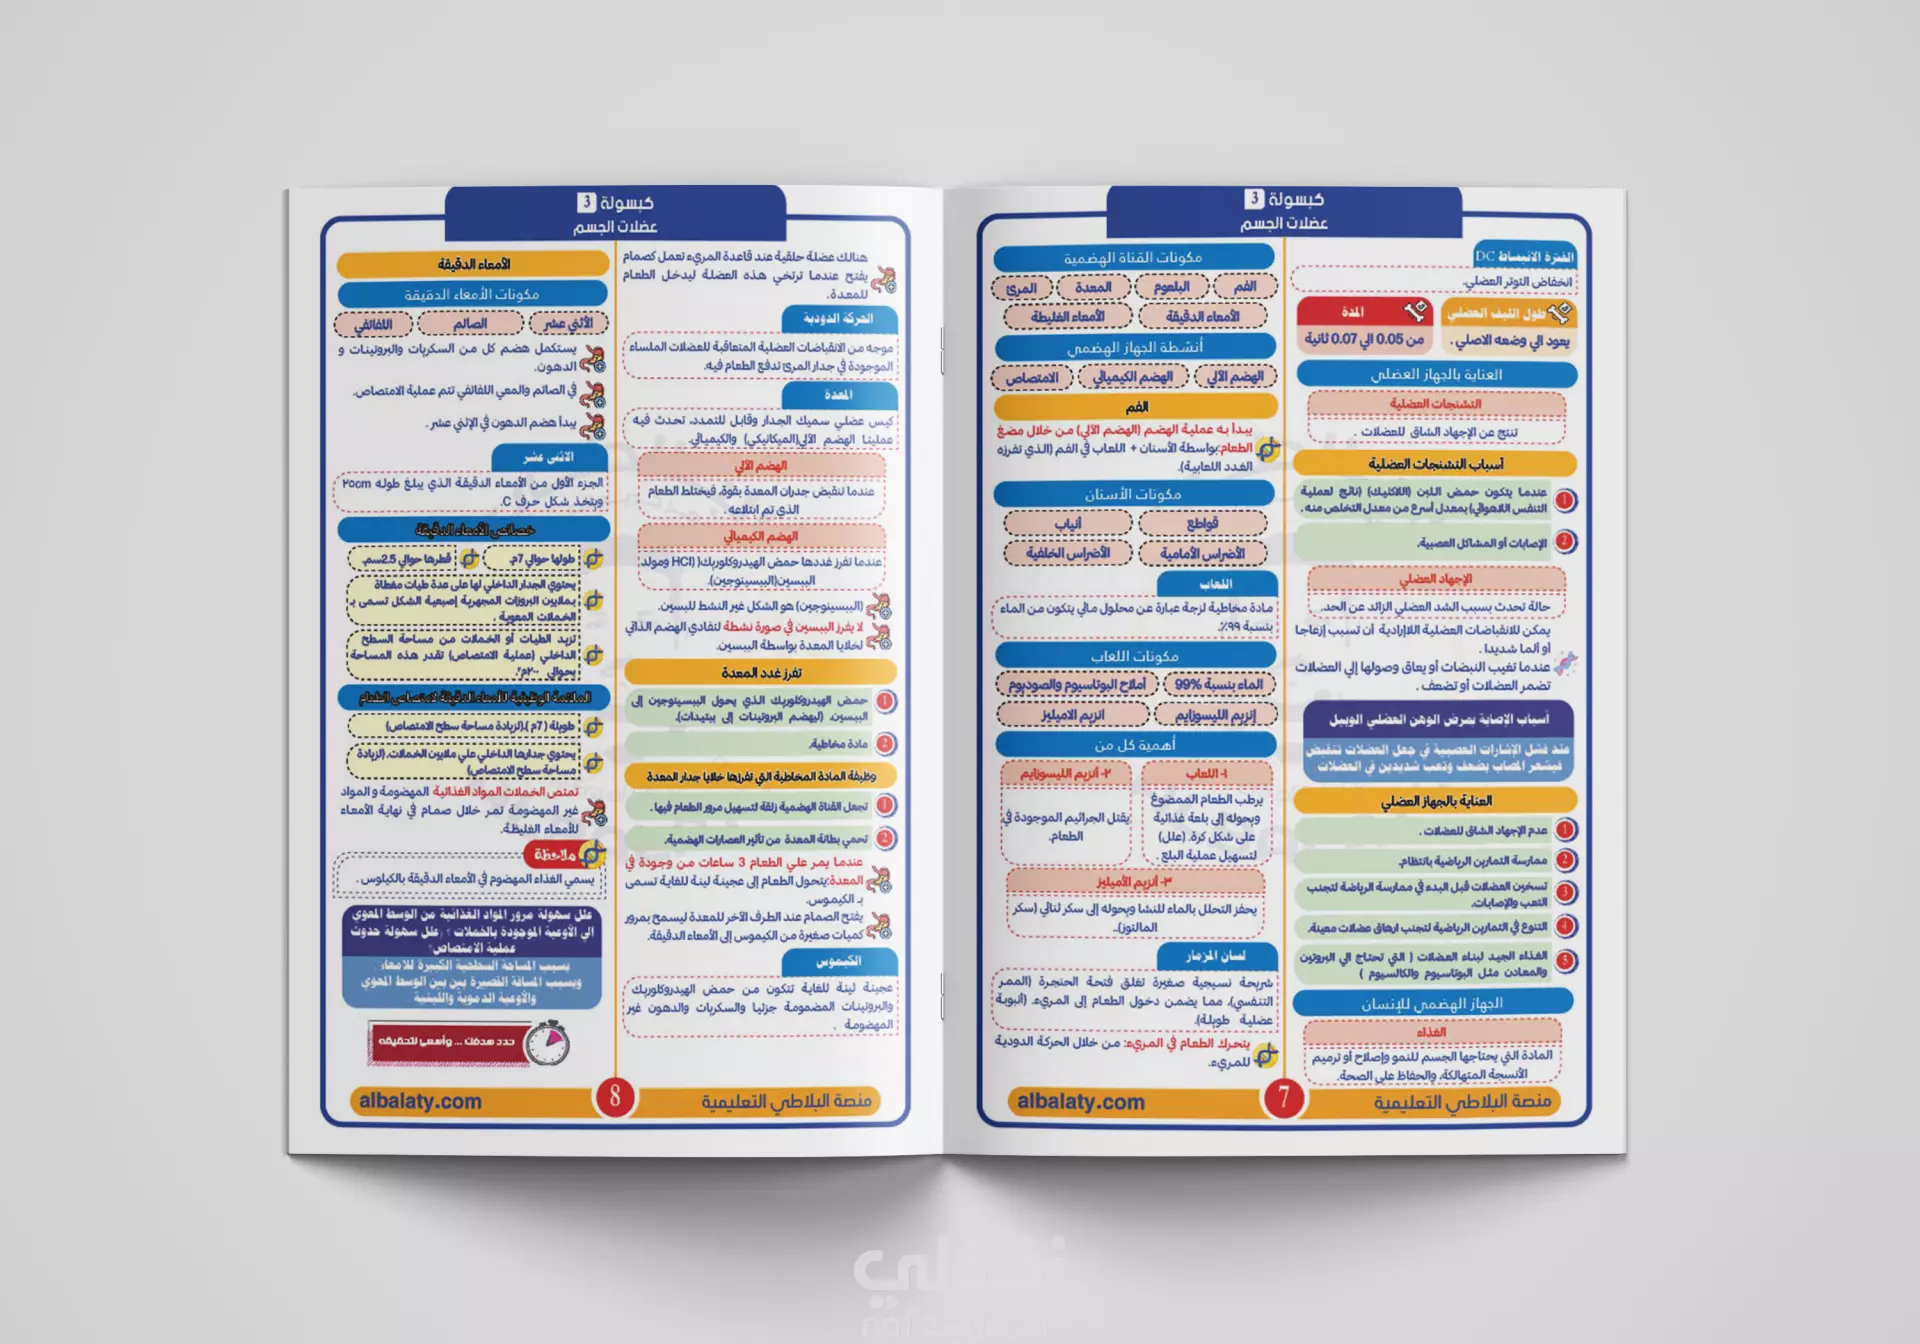 كبسولة 3
عضلات الجسم
الفترة الانبساط DC
انخفاض التوتر العضلي.
طول الليف العضلي
يعود الي وضعه الاصلي .
المدة
من 0.05 الي 0.07 ثانية
العناية بالجهاز العضلي
التشنجات العضلية
تنتج عن الإجهاد الشاق للعضلات .
أسباب التشنجات العضلية
1 عندما يتكون حمض اللبن (اللاكتيك) (ناتج لعملية
التنفس اللاهوائي) بمعدل أسرع من معدل التخلص منه .
2 الإصابات أو المشاكل العصبية.
الإجهاد العضلي
حالة تحدث بسبب الشد العضلي الزائد عن الحد.
يمكن للانقباضات العضلية اللاإرادية أن تسبب إزعاجا
أو ألما شديدا .
عندما تغيب النبضات أو يعاق وصولها إلي العضلات
تضمر العضلات أو تضعف .
أسباب الإصابة بمرض الوهن العضلي الوبيل
عند فشل الإشارات العصبية في جعل العضلات تنقبض
فيشعر المصاب بضعف وتعب شديدين في العضلات
العناية بالجهاز العضلي
1 عدم الإجهاد الشاق للعضلات .
2 ممارسة التمارين الرياضية بانتظام.
3 تسخين العضلات قبل البدء في ممارسة الرياضة لتجنب
التعب والإصابات.
4 التنوع في التمارين الرياضية لتجنب ارهاق عضلات معينة.
5 الغذاء الجيد لبناء العضلات ( التي تحتاج الي البروتين
والمعادن مثل البوتاسيوم والكالسيوم )
الجهاز الهضمي للإنسان
الغذاء
المادة التي يحتاجها الجسم للنمو وإصلاح أو ترميم
الأنسجة المتهالكة، والحفاظ على الصحة.
مكونات القناة الهضمية
الفم
البلعوم
المعدة
المرئ
الأمعاء الدقيقة
الأمعاء الغليظة
أنشطة الجهاز الهضمي
الهضم الآلي
الهضم الكيميائي
الامتصاص
الفم
يبدأ به عملية الهضم (الهضم الآلي) من خلال مضغ
الطعام:بواسطة الأسنان + اللعاب في الفم (الذي تفرزه
الغدد اللعابية).
مكونات الأسنان
قواطع
أنياب
الأضراس الأمامية
الأضراس الخلفية
اللعاب
مادة مخاطية لزجة عبارة عن محلول مائي يتكون من الماء
بنسبة ٩٩٪.
مكونات اللعاب
الماء بنسبة 99%
أملاح البوتاسيوم والصوديوم
إنزيم الليسوزايم
انزيم الاميليز
أهمية كل من
١- اللعاب
يرطب الطعام الممضوغ
ويحوله إلى بلعة غذائية
على شكل كرة. (علل)
لتسهيل عملية البلع .
٢- أنزيم الليسوزايم
يقتل الجراثيم الموجودة في
الطعام.
٣- أنزيم الأميليز
يحفز التحلل بالماء للنشا ويحوله إلى سكر ثنائي (سكر
المالتوز)..
لسان المزمار
شريحة نسيجية صغيرة تغلق فتحة الحنجرة (الممر
التنفسي)، مما يضمن دخول الطعام إلى المريء. (أنبوبة
عضلية طويلة).
يتحرك الطعام في المريء: من خلال الحركة الدودية
للمريء.
منصة البلاطي التعليمية
7
albalaty.com
كبسولة 3
عضلات الجسم
هنالك عضلة حلقية عند قاعدة المريء تعمل كصمام
يفتح عندما ترتخي هذه العضلة ليدخل الطعام
للمعدة.
الحركة الدودية
موجه من الانقباضات العضلية المتعاقبة للعضلات الملساء
الموجودة في جدار المرئ تدفع الطعام فيه.
المعدة
كيس عضلي سميك الجدار وقابل للتمدد، تحدث فيه
عمليتا الهضم الآلي(الميكانيكي) والكيميائي.
الهضم الآلي
عندما تنقبض جدران المعدة بقوة، فيختلط الطعام
الذي تم ابتلاعه.
الهضم الكيميائي
عندما تفرز غددها حمض الهيدروكلوريك( HCl) ومولد
الببسين(الببسينوجين).
(الببسينوجين) هو الشكل غير النشط للبسين.
لا يفرز الببسين في صورة نشطة لتفادي الهضم الذاتي
لخلايا المعدة بواسطة الببسين.
تفرز غدد المعدة
1 حمض الهيدروكلوريك الذي يحول الببسينوجين إلى
الببسين. (ليهضم البروتينات إلى ببتيدات).
2 مادة مخاطية.
وظيفة المادة المخاطية التي تفرزها خلايا جدار المعدة
1 تجعل القناة الهضمية زلقة لتسهيل مرور الطعام فيها .
2 تحمي بطانة المعدة من تأثير العصارات الهضمية.
عندما يمر علي الطعام 3 ساعات من وجودة في
المعدة:يتحول الطعام إلى عجينة لينة للغاية تسمى
بـ الكيموس.
يفتح الصمام عند الطرف الآخر للمعدة ليسمح بمرور
كميات صغيرة من الكيموس إلى الأمعاء الدقيقة.
الكيموس
عجينة لينة للغاية تتكون من حمض الهيدروكلوريك
والبروتينات المضمومة جزئيا والسكريات والدهون غير
المهضومة .
الأمعاء الدقيقة
مكونات الأمعاء الدقيقة
الأثني عشر
الصائم
اللفائفي
يستكمل هضم كل من السكريات والبروتينات و
الدهون.
في الصائم والمعي اللفائفي تتم عملية الامتصاص.
يبدأ هضم الدهون في الإثني عشر .
الاثنى عشر
الجزء الأول من الأمعاء الدقيقة الذي يبلغ طوله ٢٥cm
ويتخذ شكل حرف C.
خصائص الأمعاء الدقيقة
طولها حوالي 7م.
قطرها حوالي 2.5سم.
يحتوي الجدار الداخلي لها على عدة طيات مغطاة
بملايين البروزات المجهرية إصبعية الشكل تسمى بـ
الخملات المعوية .
تزيد الطيات أو الخملات من مساحة السطح
الداخلي (عملية الامتصاص) تقدر هذه المساحة
بحوالي ٢٠٠م².
الملائمة الوظيفية للأمعاء الدقيقة لامتصاص الطعام
طويلة ( 7م ).(لزيادة مساحة سطح الامتصاص)
يحتوي جدارها الداخلي علي ملايين الخملات. (لزيادة
مساحة سطح الامتصاص)
تمتص الخملات المواد الغذائية المهضومة و المواد
غير المهضومة تمر خلال صمام في نهاية الأمعاء
للأمعاء الغليظة.
ملاحظة
يسمي الغذاء المهضوم في الأمعاء الدقيقة بالكيلوس .
علل سهولة مرور المواد الغذائية من الوسط المعوي
الي الأوعية الموجودة بالخملات ؟ (علل سهولة حدوث
عملية الامتصاص؟
بسبب المساحة السطحية الكبيرة للأمعاء
وبسبب المسافة القصيرة بين بين الوسط المعوي
والأوعية الدموية والليفية
حدد هدفك ... وأسعى لتحقيقه
منصة البلاطي التعليمية
8
albalaty.com